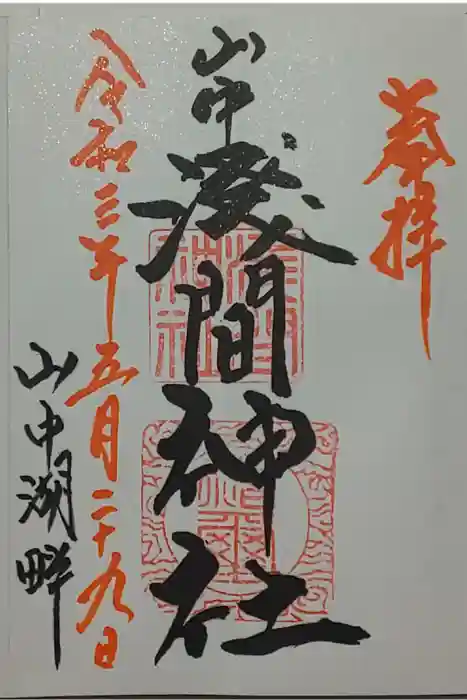 奉拝
山中
浅間神社
令和三年五月二十九日
山中湖畔